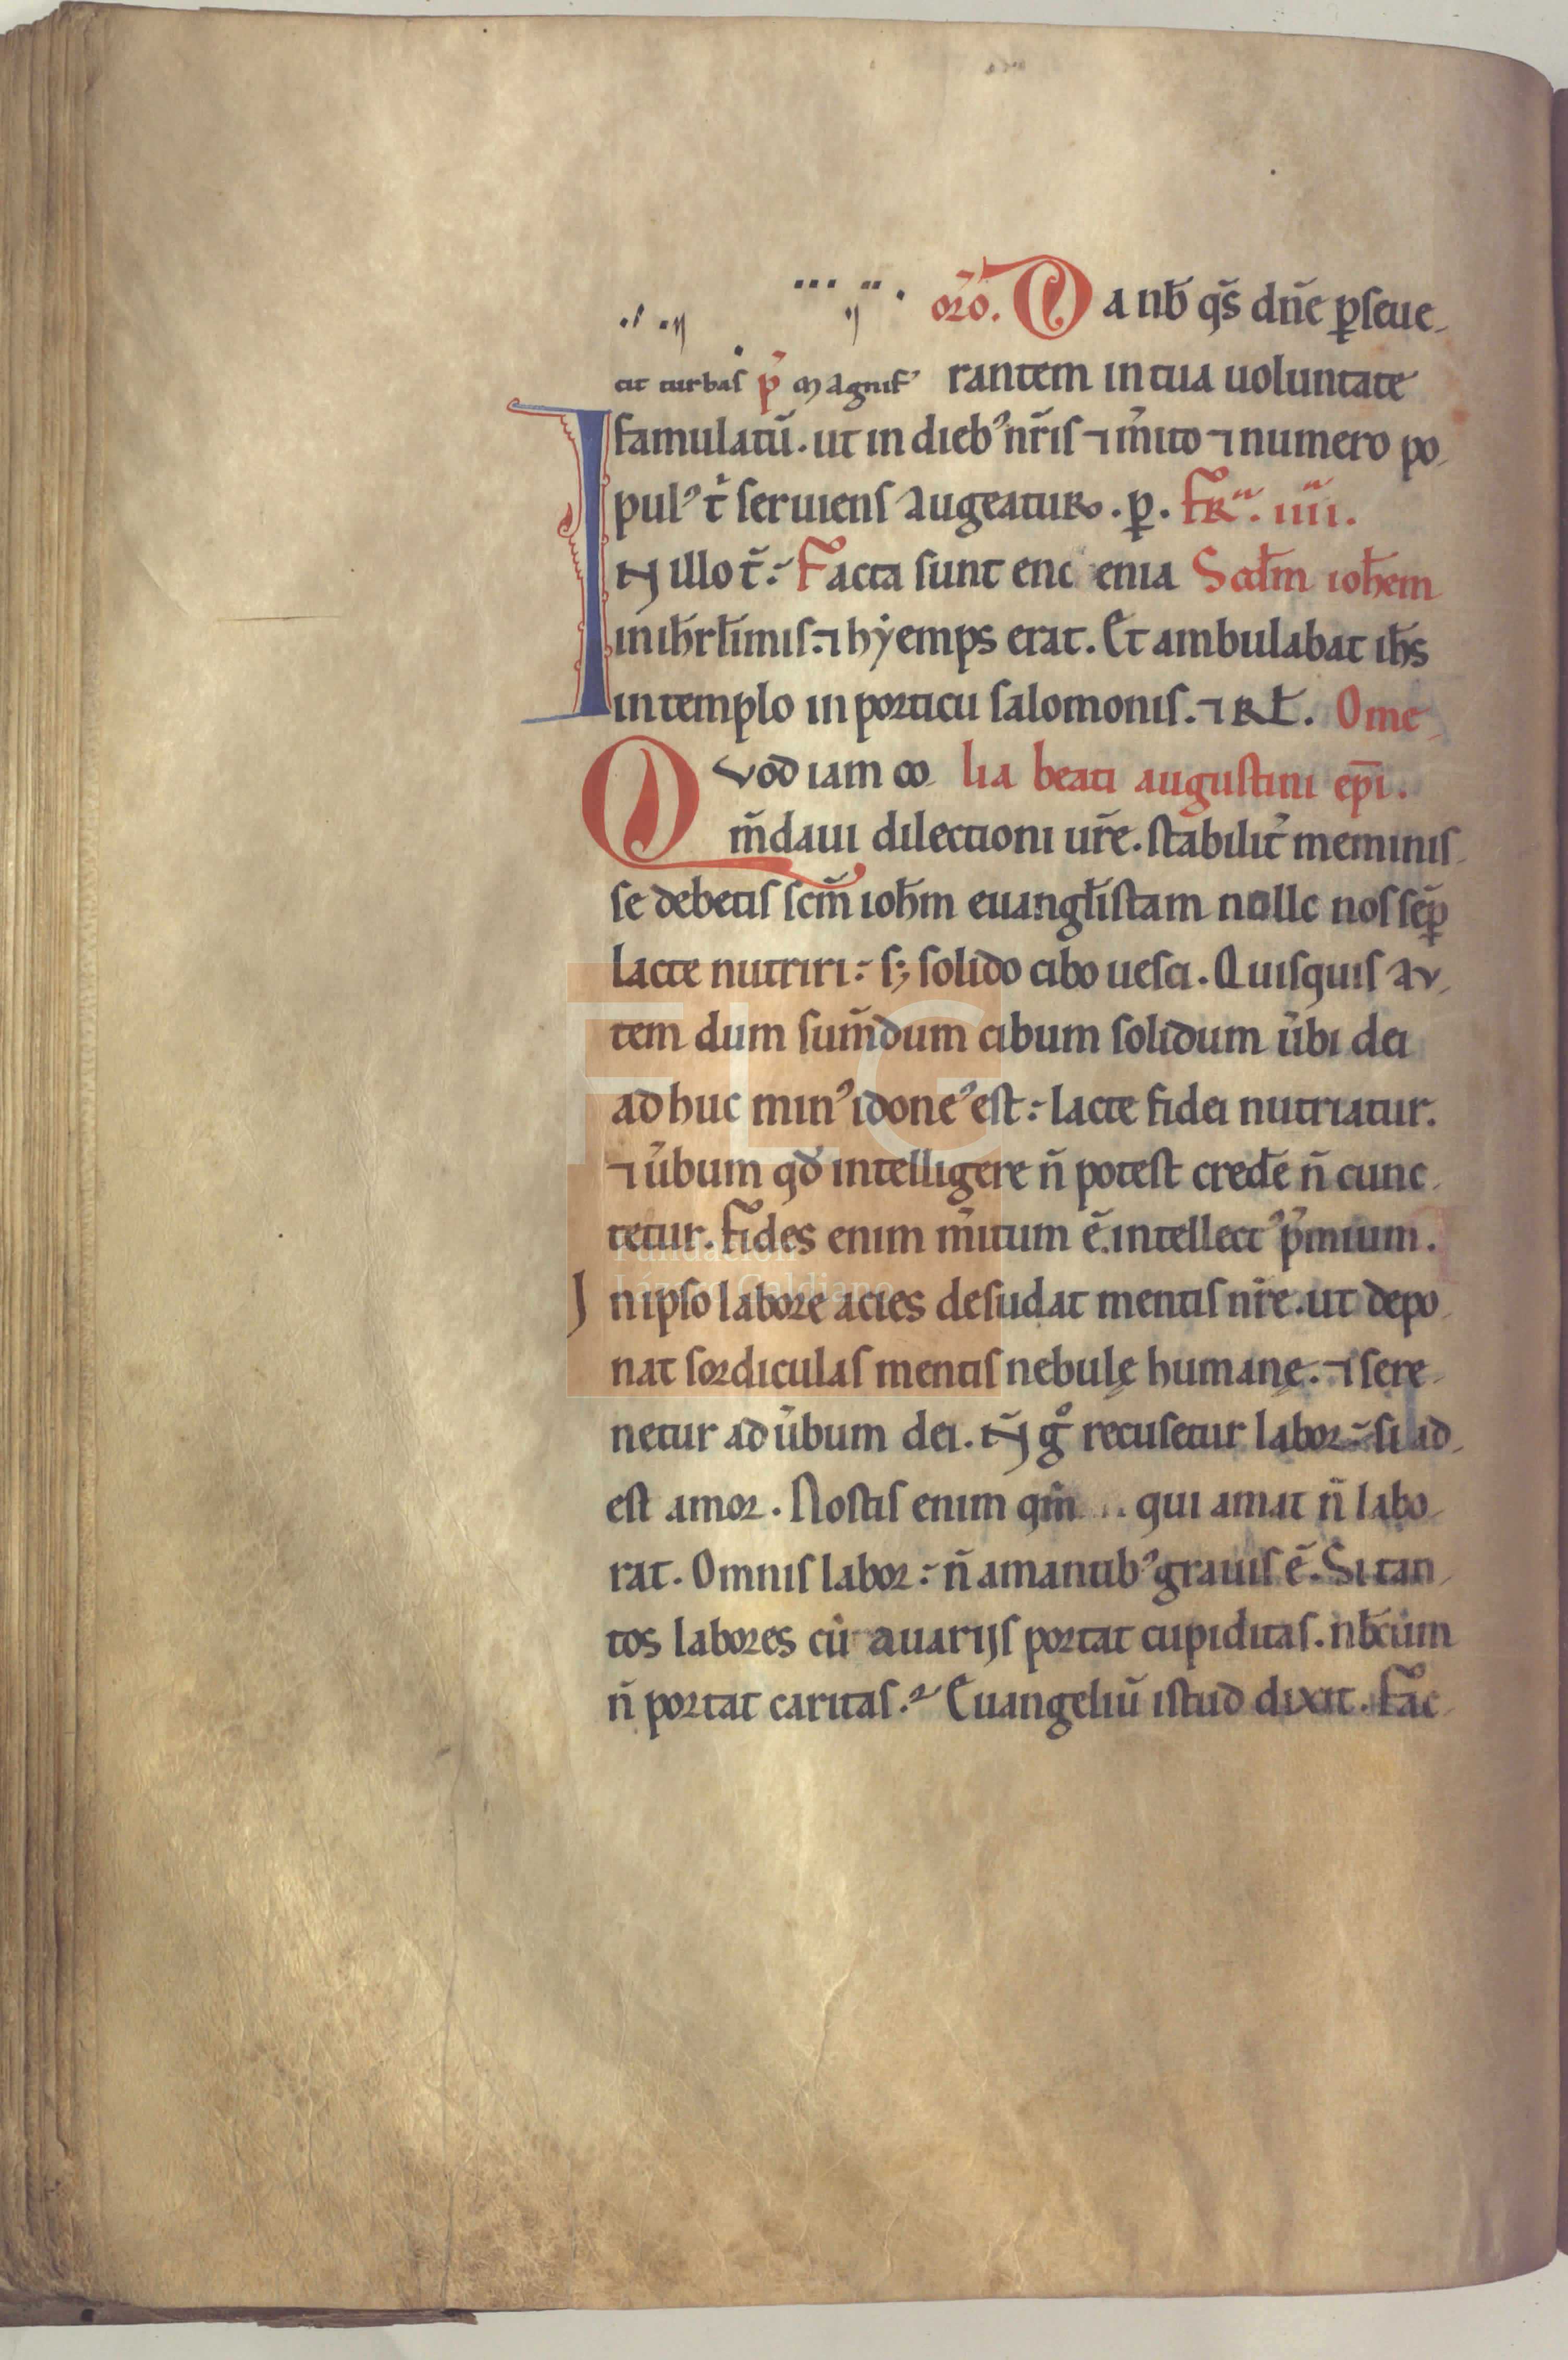 oro. Da nb̄ qs̄ dn̄e ꝑseue
cit turbas p̄ Magnif̕ rantem in tua uoluntate
famulatū. ut in dieb⁹ nr̄is ⁊ m̄ito ⁊ numero po
pul⁹ t̄ seruiens augeatur. ꝑ. Fr̄. iiii.
IN illo t̄: Facta sunt enc enia Scd̄m ioh̄em
in ih̄rl̄imis. ⁊ hẏemps erat. Et ambulabat ih̄s
in templo in porticu salomonis. ⁊ Rł. Ome
Qvod iam co lia beati augustini ep̄i.
m̄daui dilectioni ur̄e. stabilit̄ meminis
se debetis sc̄m ioh̄m euangl̄istam nolle nos sēꝑ
lacte nutriri: sꝫ solido cibo uesci. Quisquis au
tem dum sum̄dum cibum solidum ūbi dei
ad huc min⁹ idone⁹ est: lacte fidei nutriatur.
⁊ ūbum qd̄ intelligere n̄ potest cred̄e n̄ cunc
tetur. Fides enim m̄itum ē. intellect⁹ p̄mium.
In ipso labore acies desudat mentis nr̄e. ut depo
nat sordiculas mentis nebulę humanę. ⁊ sere
netur ad ūbum dei. N̄ gͦ recusetur labor: si ad
est amor. Nostis enim qm̄ qui amat n̄ labo
rat. Omnis labor: n̄ amantib⁹ grauis ē. Si tan
tos labores cū auarijs portat cupiditas. nb̄cum
n̄ portat caritas. Euangeliū istud dixit. Fac
FLG
Fundación
Lázaro Galdiano